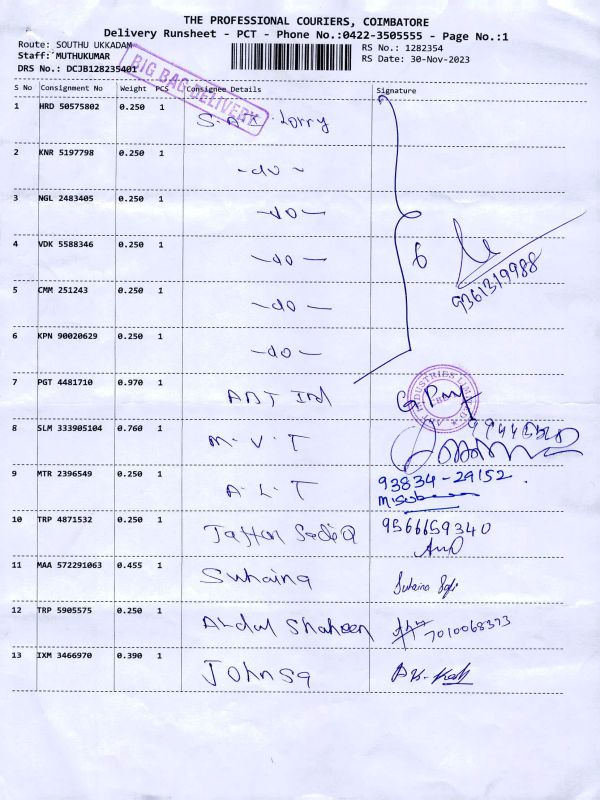 THE PROFESSIONAL COURIERS, COIMBATORE
Delivery Runsheet - PCT - Phone No.:0422-3505555 - Page No.:1
Route: SOUTHU UKKADAM
RS No.: 1282354
Staff: MUTHUKUMAR
RS Date: 30-Nov-2023
DRS No.: DCJB128235401
BIG BAG DELIVERY
S No Consignment No Weight PCS Consignee Details Signature
1 HRD 50575802 0.250 1 Lorry
2 KNR 5197798 0.250 1 -do-
3 NGL 2483405 0.250 1 -do-
4 VDK 5588346 0.250 1 -do- 6
9361319988
5 CMM 251243 0.250 1 -do-
6 KPN 90020629 0.250 1 -do-
7 PGT 4481710 0.970 1 ABT Ind
INDUSTRIES LIMITED
8 SLM 333905104 0.760 1 M.V.T
9 MTR 2396549 0.250 1 A.L.T 93834-29152
10 TRP 4871532 0.250 1 9566659340
11 MAA 572291063 0.455 1 Suhaina Suhaina
12 TRP 5905575 0.250 1 Abdul Shaheen 7010068373
13 IXM 3466970 0.390 1 Johnsa